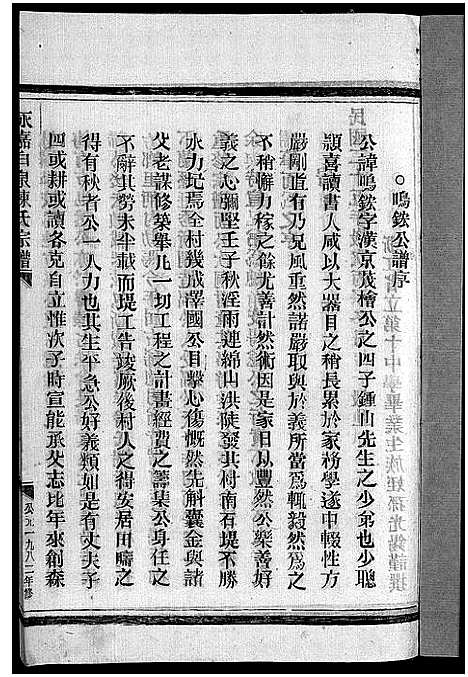 ○鳴鋐公譜序
公諱鳴鋐字漢京茂檜公之四子鍾山先生之少弟也少聰
頴喜讀書人咸以大器目之稍長累於家務學遂中輟性方
嚴剛直有乃兄風重然諾嚴取與於義所當為輒毅然為之
不稍懈力穡之餘尤善計然術因是家日以豐然公樂善好
義之心彌堅壬子秋淫雨連綿山洪陡發共村南石堤不勝
水力圮焉全村幾成澤國公目擊心傷慨然先斛囊金與諸
父老謀修築舉凡一切工程之計畫經費之籌集公身任之
不辭其勞未半載而堤工告竣厥後村人之得安居田疇之
得有秋者公一人力也其生平急公好義類如是有丈夫子
四或耕或讀各克自立惟次子時宣能承父志比年來創森
永嘉白泉陳氏宗譜
公元一九八二年修